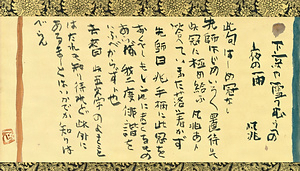 下京や雪つむ上の
夜の雨 凡兆
此句はじめ冠なし
先師はじめいろいろ置侍りて
此冠に極め給ふ 凡兆あと
答へていまだ落着かず
先師曰 兆手柄に此冠を
もしまさるもの
あらば我二度俳諧を
いふべからずと也
去来曰 此五文字のよきことは
たれも知り侍れど 是外に
あるまじとはいかでか知り侍